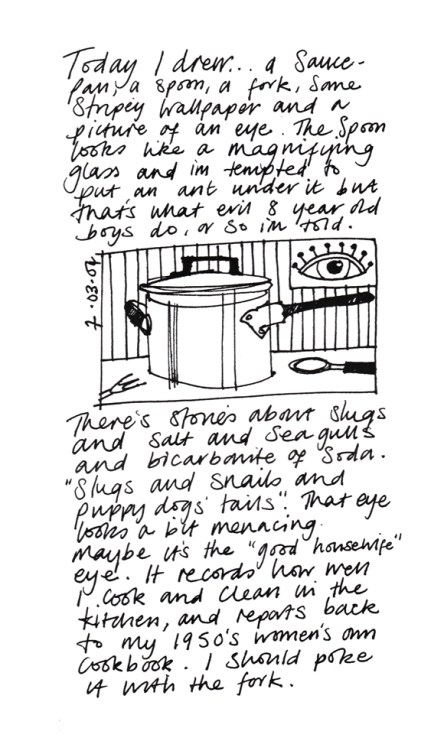 Today I drew... a Sauce-
pan, a spoon, a fork, some
Stripey wallpaper and a
picture of an eye. The Spoon
looks like a magnifying
glass and im tempted to
put an ant under it but
that's what evil 8 year old
boys do, or so i'm told.
7.03.07
There's stories about slugs
and salt and Sea gulls
and bicarbonite of Soda.
"Slugs and Snails and
puppy dogs' tails". That eye
looks a bit menacing.
maybe it's the "good housewife"
eye. It records how well
I cook and clean in the
kitchen, and reports back
to my 1950's women's own
Cookbook. I should poke
it with the fork.